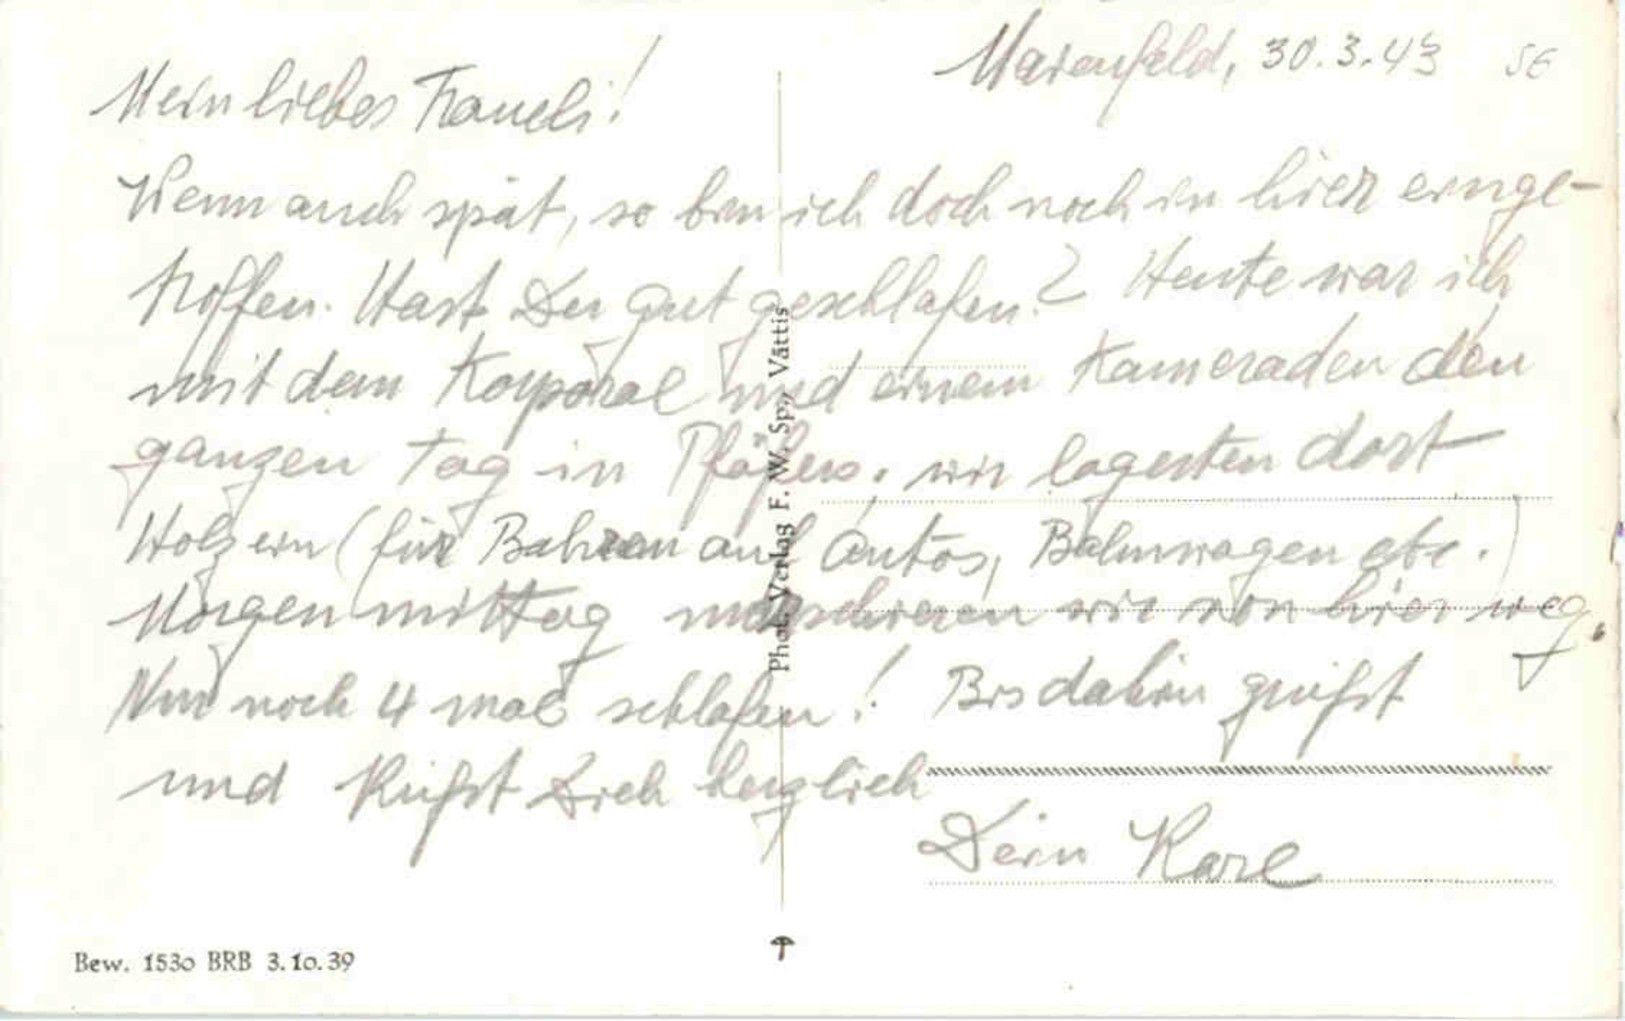 Marenfeld, 30.3.43 56
Mein liebes Fraueli!
Wenn auch spät, so bin ich doch noch in hier einge-
troffen. Hast Du gut geschlafen? Heute war ich
mit dem Korporal und einem Kameraden den
ganzen Tag in Pfäfers, wir lagerten dort
Holz ein (für Bahren auf Autos, Bahnwagen etc.)
Morgen mittag marschieren wir von hier weg.
Nur noch 4 mal schlafen! Bis dahin grüßt
und küßt Dich herzlich
Dein Karl
Phot. Verlag F. W. Sp., Vättis
Bew. 1530 BRB 3.10.39